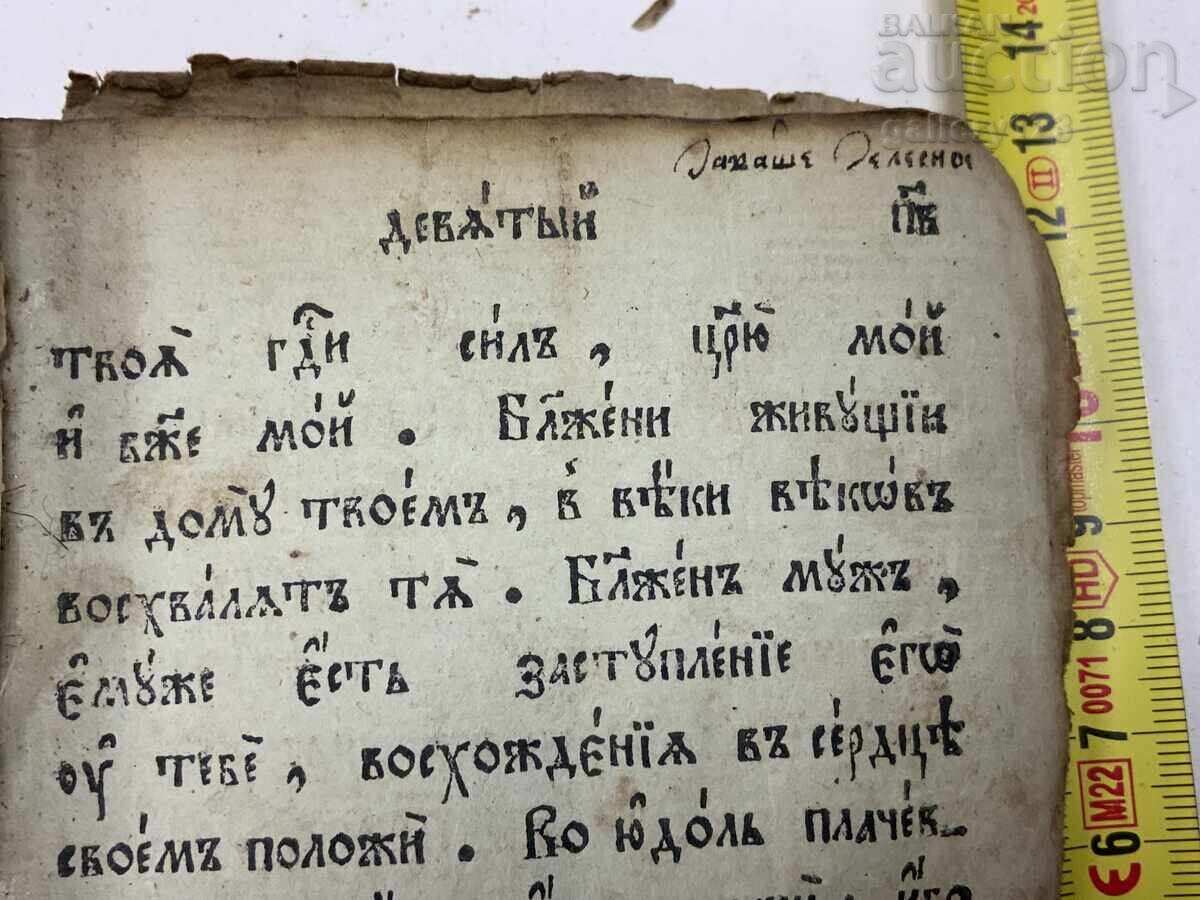 BALKAN
auction
gallery
ДЕВѦ́ТЫЙ П҃В
ТВОѦ̀ ГДⷭ҇И СИ́ЛЪ, ЦР҃Ю̀ МО́Й
И҆ БЖ҃Е МО́Й. БЛ҃ЖЕ́НИ ЖИВꙋ́ЩІИ
ВЪ ДОМꙋ̀ ТВОЕ́МЪ, В̾ ВѢ́КИ ВѢКѠ́ВЪ
ВОСХВА́ЛѦТЪ ТѦ̀. БЛ҃ЖЕ́НЪ МꙋЖЪ,
Е҆МꙋЖЕ Е҆́СТЬ ЗАСТꙋПЛЕ́НІЕ Е҆ГѠ̀
ОУ҆ ТЕБЀ, ВОСХОЖДЕ́НІѦ ВЪ СЕ́РДЦѢ
СВОЕ́МЪ ПОЛОЖЍ. ВО Ю҆ДО́ЛЬ ПЛАЧЕ́В-
14
13
II
12
10
9
HD
8
0071
7
M22
6
Є